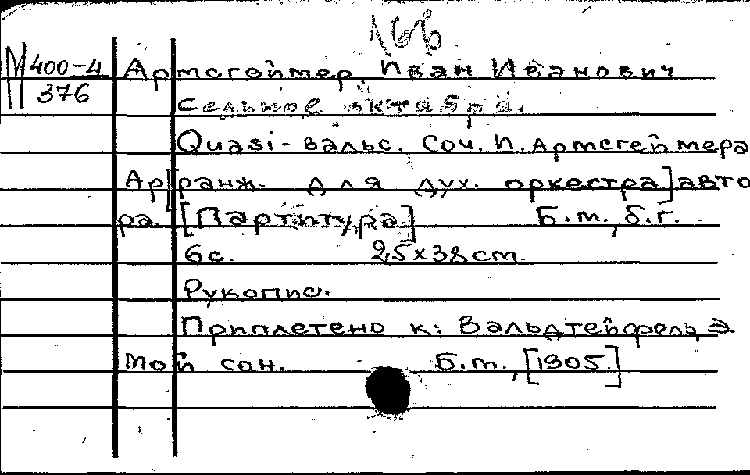 166
М 400-4 Армсгеймер, Иван Иванович
376 Седьмое октября.
Quasi-вальс. Соч. И. Армсгеймера
Ар[ранж. для дух. оркестра] авто
ра. [Партитура] Б.м., б.г.
6с. 25×38cm.
Рукопис.
Приплетено к: Вальдтейфель, Э.
Мой сон. Б.м., [1905]